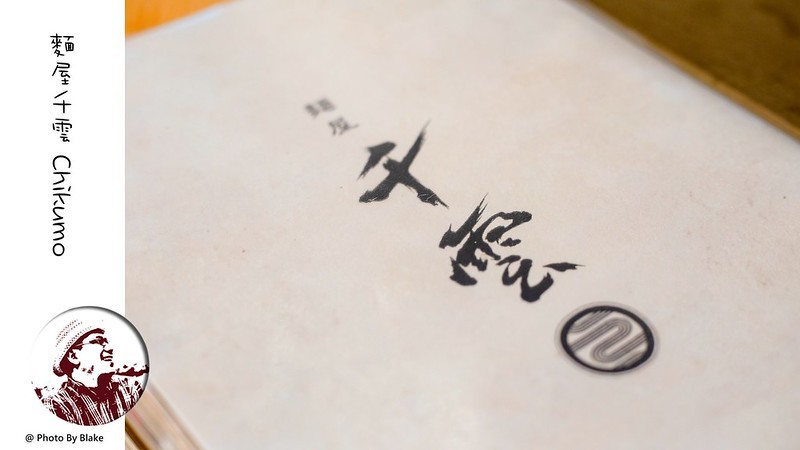 麵屋千雲 Chikumo
麺屋
千雲
@ Photo By Blake